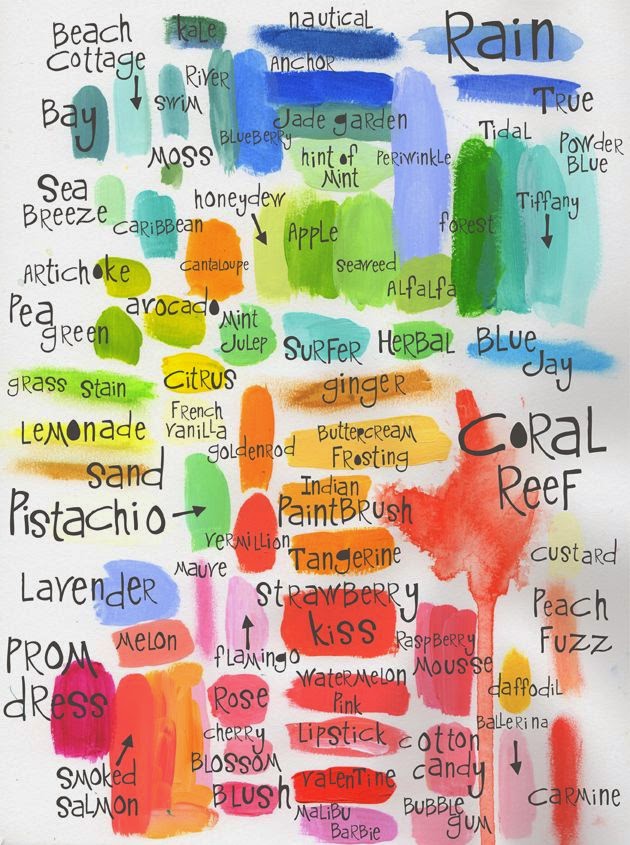 kale
nautical
Rain
Beach
Cottage
RIVER
Anchor
SWIM
TRUE
Bay
BLUEBERRY
Jade garden
TIDAL
POWDER
BLUE
MOSS
hint of
MINT
PERIWINKLE
Sea
BREEZE
honeydew
Tiffany
CARIBBEAN
APPLE
forest
CANTALOUPE
SEAWEED
ARTichoke
ALfaLfa
avocado
Pea
green
MINT
JULEP
SURFER
HERBAL
BLUE
Jay
CITRUS
grass stain
ginger
French
vanilla
LEMONADE
goldenrod
BUTTERCREAM
FROSTING
CORAL
REEF
Sand
Indian
PAINTBRUSH
Pistachio
VERMILLION
TANGERINE
CUSTARD
MAUVE
LAVENDER
STRAWBERRY
kiss
PEACH
FUZZ
MELON
flamingo
RASPBERRY
MOUSSE
PROM
dRess
WATERMELON
PINK
daffodil
ROSE
cherry
BLOSSOM
LIPSTICK
BALLERINA
cotton
candy
SMOKED
SALMON
BLUSH
VALENTINE
CARMINE
MALIBU
BARBIE
BUBBLE
gum